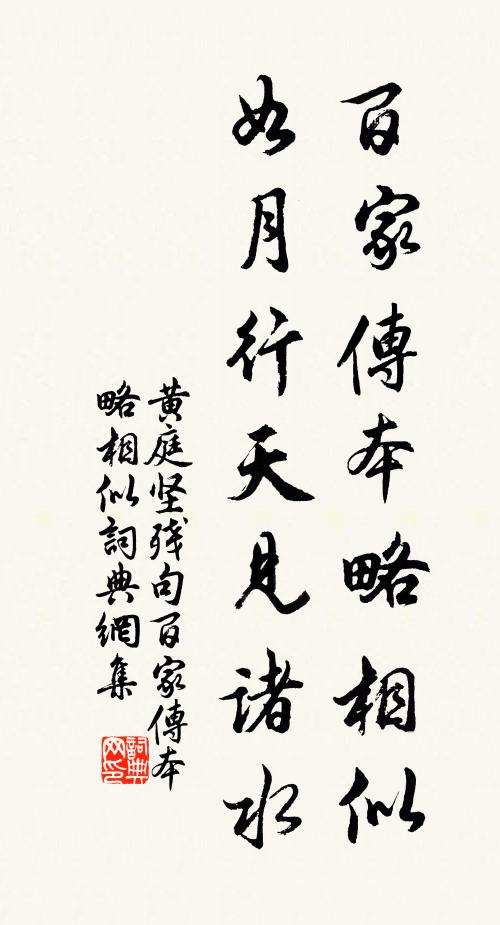 百家傳本略相似
如月行天見諸水
黄庭坚残句百家傳本
略相似詞典網集
詞典
网印